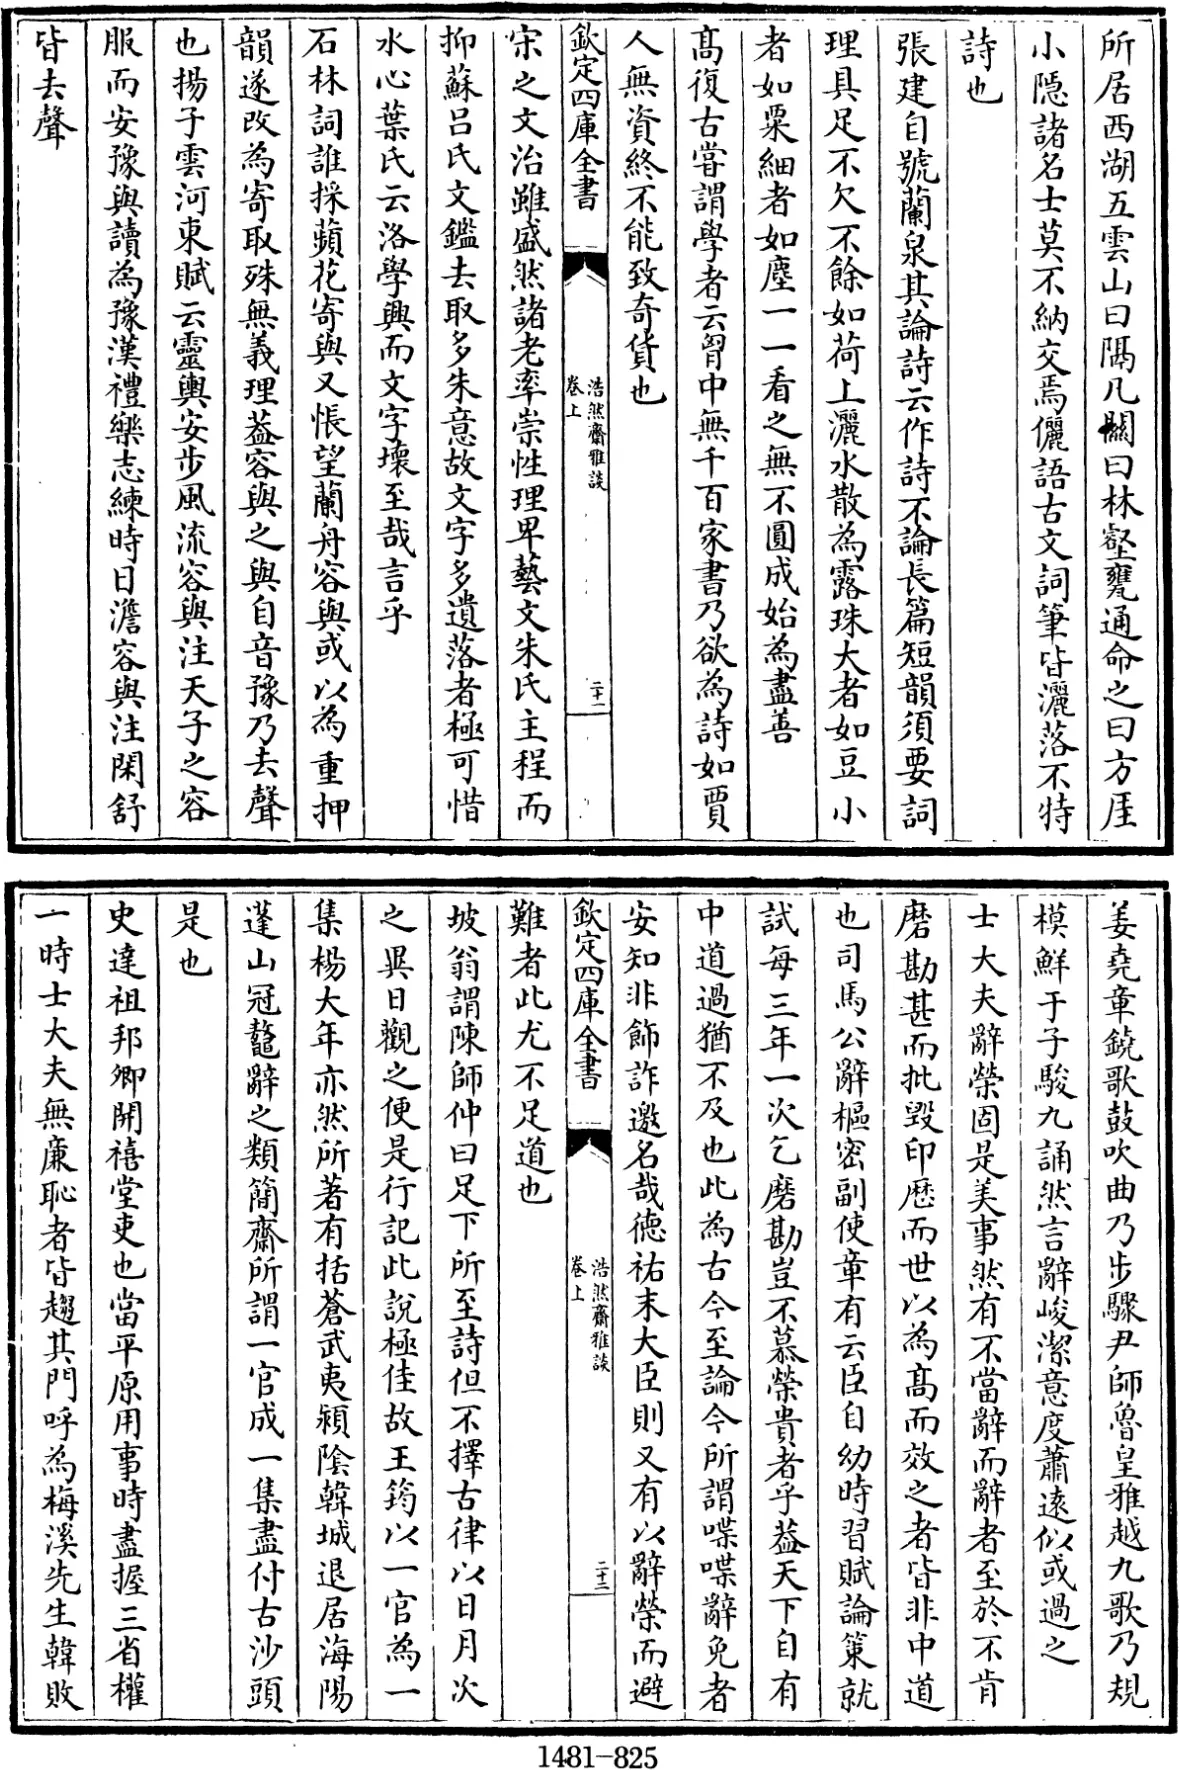 所居西湖五雲山曰隔凡關曰林壑甕通命之曰方厓
小隱諸名士莫不納交焉儷語古文詞筆皆灑落不特
詩也
張建自號蘭泉其論詩云作詩不論長篇短韻須要詞
理具足不欠不餘如荷上灑水散為露珠大者如豆小
者如粟細者如塵一一看之無不圓成始為盡善
髙復古嘗謂學者云胷中無千百家書乃欲為詩如賈
人無資終不能致奇貨也
欽定四庫全書
浩然齋雅談
卷上
二十一
宋之文治雖盛然諸老率崇性理卑藝文朱氏主程而
抑蘇吕氏文鑑去取多朱意故文字多遺落者極可惜
水心葉氏云洛學興而文字壞至哉言乎
石林詞誰採蘋花寄與又悵望蘭舟容與或以為重押
韻遂改為寄取殊無義理葢容與之與自音豫乃去聲
也揚子雲河東賦云靈輿安步風流容與注天子之容
服而安豫與讀為豫漢禮樂志練時日澹容與注閑舒
皆去聲
姜堯章鐃歌鼓吹曲乃步驟尹師魯皇雅越九歌乃規
模鮮于子駿九誦然言辭峻潔意度蕭遠似或過之
士大夫辭榮固是美事然有不當辭而辭者至於不肯
磨勘甚而批毁印歴而世以為髙而效之者皆非中道
也司馬公辭樞密副使章有云臣自幼時習賦論策就
試每三年一次乞磨勘豈不慕榮貴者乎葢天下自有
中道過猶不及也此為古今至論今所謂喋喋辭免者
安知非飾詐邀名哉德祐末大臣則又有以辭榮而避
欽定四庫全書
浩然齋雅談
卷上
二十二
難者此尤不足道也
坡翁謂陳師仲曰足下所至詩但不擇古律以日月次
之異日觀之便是行記此說極佳故王筠以一官為一
集楊大年亦然所著有括蒼武夷潁隂韓城退居海陽
蓬山冠鼇辭之類簡齋所謂一官成一集盡付古沙頭
是也
史達祖邦卿開禧堂吏也當平原用事時盡握三省權
一時士大夫無廉恥者皆趨其門呼為梅溪先生韓敗
1481-825